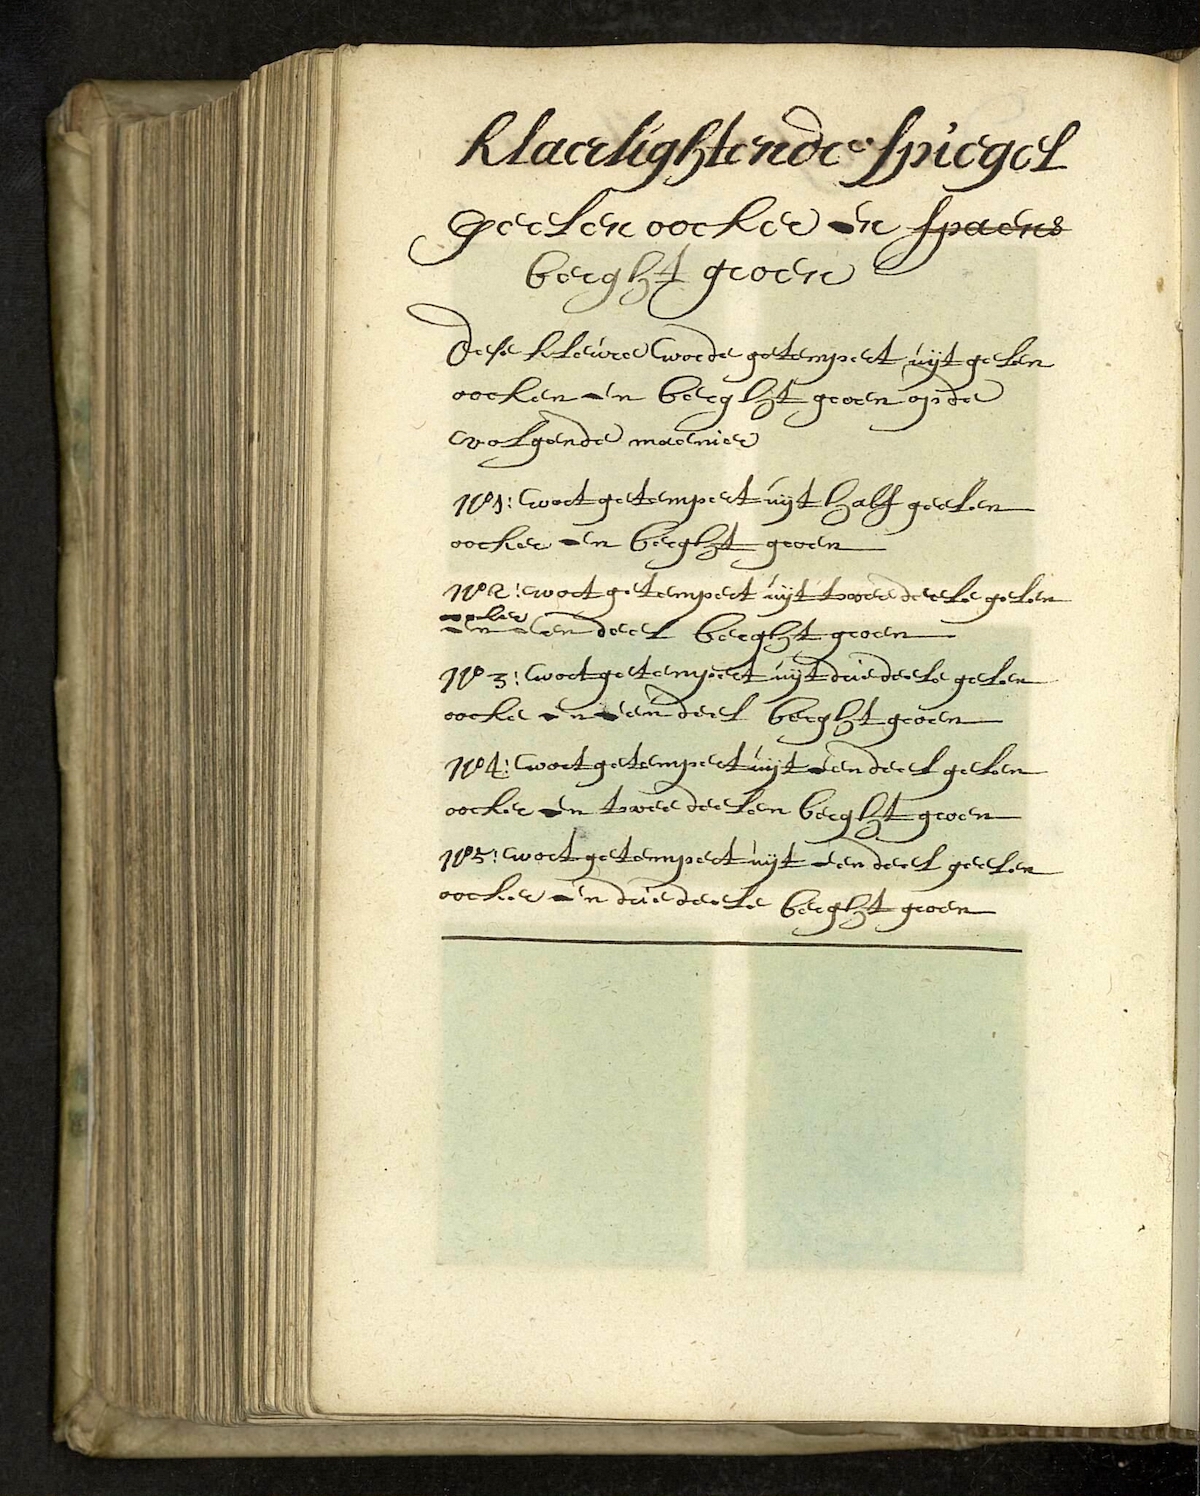 Klaerlightende Spiegel
geelen oocker en spaens
berght groen
Dese kleure worde getempert uijt gelen
oocken en berght groen op de
volgende maenier
No 1: wort getempert uijt half geelen
oocker en berght groen
No 2: wort getempert uijt twee deele gelen
oocker
en een deel berght groen
No 3: wort getempert uijt drie deele gelen
oocke en een deel berght groen
No 4: wort getempert uijt een deel gelen
oocker en twee deelen berght groen
No 5: wort getempert uijt een deel geelen
oocker en drie deele berght groen